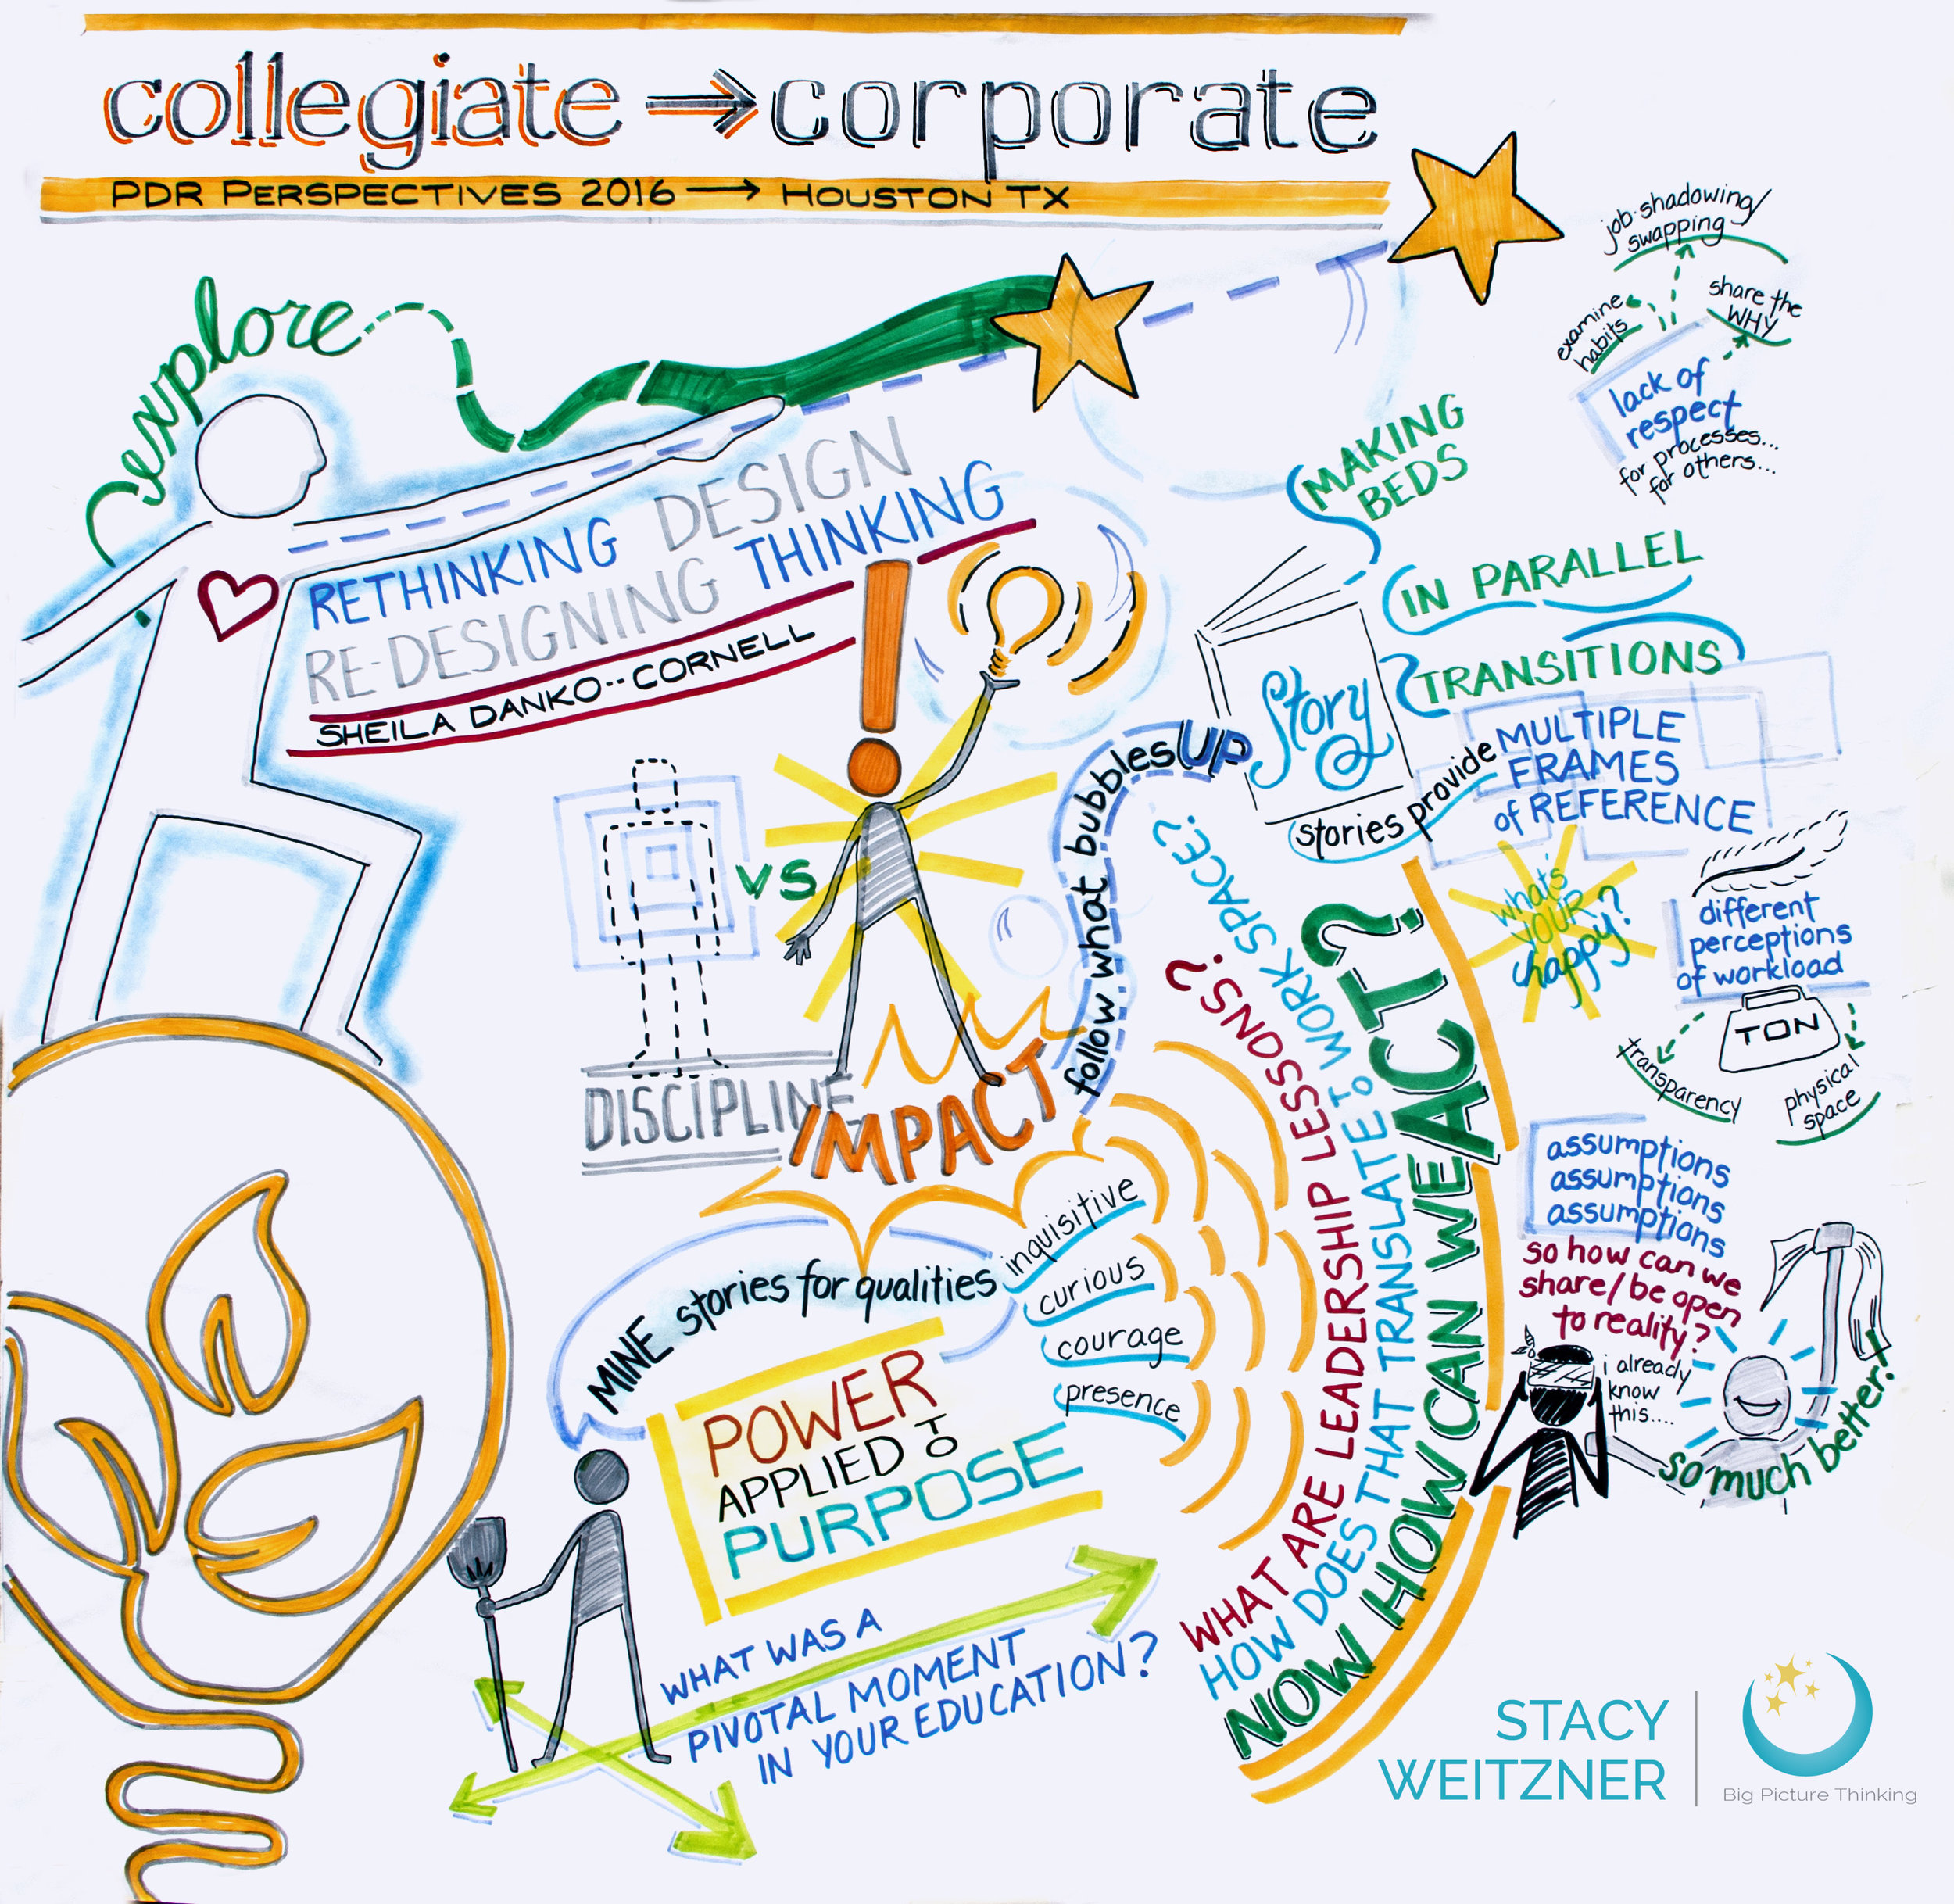 collegiate → corporate
PDR PERSPECTIVES 2016 → HOUSTON TX
explore
RETHINKING DESIGN
RE-DESIGNING THINKING
SHEILA DANKO -- CORNELL
DISCIPLINE
VS
IMPACT
follow what bubbles UP
Story
MAKING
BEDS
IN PARALLEL
TRANSITIONS
stories provide
MULTIPLE
FRAMES
of REFERENCE
job-shadowing/
swapping
examine
habits
share the
WHY
lack of
respect
for processes...
for others...
what's
YOUR
happy?
different
perceptions
of workload
TON
transparency
physical
space
assumptions
assumptions
assumptions
so how can we
share/be open
to reality?
i already
know
this....
so much better!
MINE stories for qualities
inquisitive
curious
courage
presence
POWER
APPLIED TO
PURPOSE
WHAT WAS A
PIVOTAL MOMENT
IN YOUR EDUCATION?
WHAT ARE LEADERSHIP LESSONS?
HOW DOES THAT TRANSLATE TO WORK SPACE?
NOW HOW CAN WE ACT?
STACY
WEITZNER
Big Picture Thinking